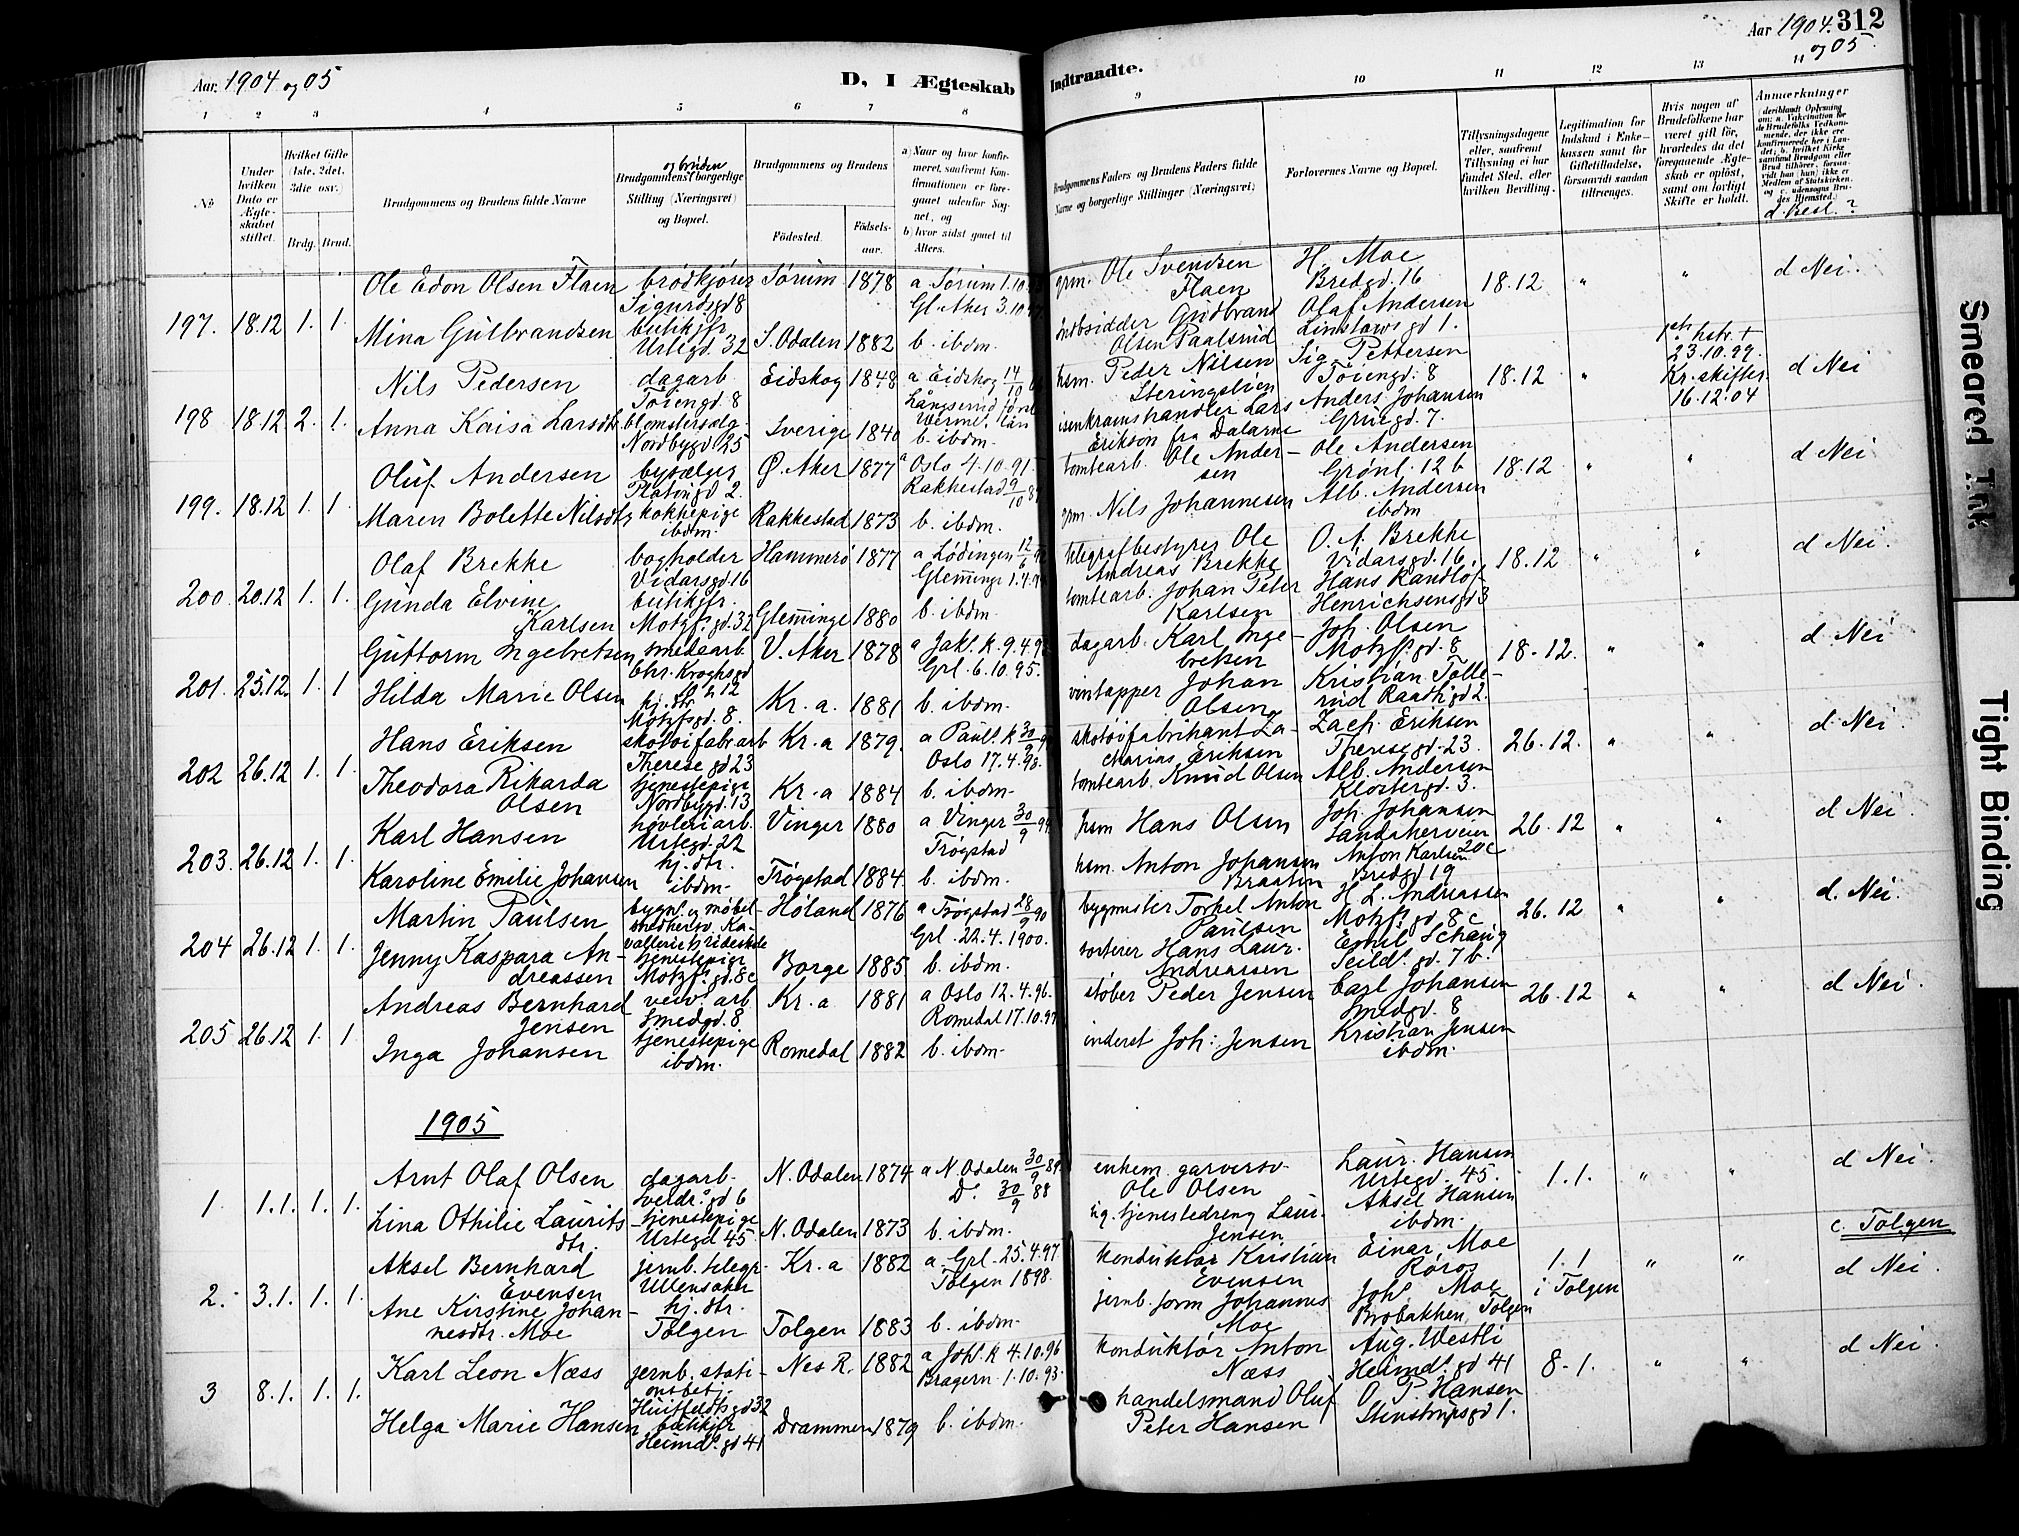 Aar 1904 og 05
D, I Ægteskab
Indtraadte.
Aar 1904. 312
og 05
1 2 3 4 5 6 7 8 9 10 11 12 13 14
No
Under hvilken Dato er Ægteskabet stiftet.
Hvilket Gifte (1ste, 2det, 3die osv.)
Brdg. Brud.
Brudgommens og Brudens fulde Navne
og bruden
Brudgommens borgerlige Stilling (Næringsvei) og Bopæl.
Brudgommens og Brudens
Fødested. Fødselsaar.
a) Naar og hvor konfirmeret, saafremt Konfirmationen er foregaaet udenfor Sognet, og
b) hvor sidst gaaet til Alters.
Brudgommens Faders og Brudens Faders fulde Navne og borgerlige Stillinger (Næringsvei)
Forlovernes Navne og Bopæl.
Tillysningsdagene eller, saafremt Tillysning ei har fundet Sted, efter hvilken Bevilling.
Legitimation for Indskud i Enkekassen samt for Giftetilladelse, forsaavidt saadan tiltrænges.
Hvis nogen af Brudefolkene har været gift før, hvorledes da det foregaaende Ægteskab er opløst, samt om lovligt Skifte er holdt.
Anmærkninger
d. Besl. ?
197. 18.12 1. 1.
Ole Edon Olsen Flaen brødkjører Sigurdsgd 8 Sørum 1878 a Sørum 1.10.
Mina Gulbrandsen butikjfr. Urtegd. 32 S. Odalen 1882 Gl. Aker 3.10. b. ibdm.
grm. Ole Svendsen Flaen
Gudbrand Olsen Paalsrud
H. Moe Bredgd. 16
Olaf Andersen Linstowsgd 1.
18.12 " " d Nei.
198 18.12 2. 1.
Nils Pedersen dagarb. Tøiengd. 8 Eidskog 1848 a Eidskog 14/10
Anna Kaisa Larsdtr blomstersælg. Nordbygd. 25 Sverige 1840 b. ibdm.
hsm. Peder Nilsen
isenkramshandler Lars Erikson fra Dalarne
Sig. Pettersen Tøiengd. 8
Anders Johansen Grüegd. 7.
18.12 "
23.10.99.
Kr. skifter.
16.12.04
d Nei
199. 18.12 1. 1.
Oluf Andersen bysælger Platougd 2. Ø. Aker 1877 a Oslo 4.10.91
Maren Bolette Nilsdtr kokkepige ibdm. Rakkestad 1873 Rakkestad 9/10 b. ibdm.
tomtearb. Ole Andersen
grm. Nils Johannesen
Ole Andersen Grønl. 12 b
Alb. Andersen ibdm
18.12 " " d Nei
200. 20.12 1. 1.
Olaf Brekke bogholder Vidarsgd. 16 Hammerø 1877 a Lødingen 12/6
Gunda Elvine Karlsen butikjfr. Motzf. gd. 32 Glemminge 1880 Glemminge 1.4. b. ibdm.
telegrafbestyrer Ole Andreas Brekke
tomtearb. Johan Peter Karlsen
O. A. Brekke Vidarsgd. 16.
Hans Randlöf Henrichsensgd 3
18.12 " " d Nei.
201. 25.12. 1. 1
Guttorm Ingebretsen smedearb. Chr. Kroghsgd V. Aker 1878 a Jak. k. 9.4.
Hilda Marie Olsen hj. dtr. Motzfsgd. 8. Kr. a. 1881 Grl. 6.10.95. b. ibdm.
dagarb. Karl Ingebretsen
vintapper Johan Olsen
Joh. Olsen Motzf. gd. 8
Kristian Tollerud Raadhgd 2.
18.12. " " d. Nei
202 26.12 1. 1.
Hans Eriksen skotøifabr. arb Therese gd 23 Kr. a 1879. a Paul. k 30/9
Theodora Rikarda Olsen tjenestepige Nordbygd. 13 Kr. a 1884 Oslo 17.4.98. b. ibdm.
skotøifabrikant Zacharias Eriksen
tomtearb. Knud Olsen
Zach. Eriksen Therese gd. 23.
Alb. Andersen Klostergd. 3.
26.12. " " d. Nei
203. 26.12 1. 1.
Karl Hansen høvleriarb. Urtegd. 22 Vinger 1880 a Vinger 30/9
Karoline Emilie Johansen hj. dtr. ibdm. Trøgstad 1884. Trøgstad b. ibdm.
hsm Hans Olsen
hsm. Anton Johansen Braaten
Joh. Johansen Sandakerveien 20c
Anton Karlsen Bredgd 19
26.12 " " d Nei.
204 26.12 1. 1.
Martin Paulsen bygn. og møbelsnedkersv. Kavalleriets rideskole Høland 1876 a Trøgstad 28/9 90
Jenny Kaspara Andreassen tjenestepige Motzf. gd. 8c Borge 1885 Grl. 22.4.1900. b. ibdm.
bygmester Torkel Anton Paulsen
sorterer Hans Laur. Andreassen
H. L. Andreassen Motzf. gd. 8c
Emil Schaug Seild. gd. 7 b.
26.12 " " d. Nei.
205 26.12 1. 1.
Andreas Bernhard Jensen verv. arb Smedgd. 8. Kr. a 1881 a Oslo 12.4.96.
Inga Johansen tjenestepige ibdm. Romedal 1882 Romedal 17.10.97 b. ibdm.
støber Peder Jensen
inderst Joh. Jensen
Carl Johansen Smedgd. 8
Kristian Jensen ibdm.
26.12 " " d Nei.
1905
1. 1.1. 1. 1.
Arnt Olaf Olsen dagarb. Sverdr. gd 6 N. Odalen 1874 a N. Odalen 30/9 89
Lina Othilie Lauritsdtr. tjenestepige Urtegd 45 N. Odalen 1873 D. 30/9 88 b. ibdm.
enkem. garversv. Ole Olsen
ug. tjenestedreng Laur. Jensen
Laur. Hansen Urtegd. 45.
Aksel Hansen ibdm.
1.1. " " d Nei.
2. 3.1. 1. 1.
Aksel Bernhard Evensen jernb. telegr. Ullensaker Kr. a 1882 a Grl. 25.4.97
Ane Kirstine Johannesdtr. Moe hj. dtr. Tolgen Tolgen 1883 Tolgen 1898. b. ibdm.
konduktør Kristian Evensen
jernb. form Johannes Moe
Einar Moe Røros
Joh. Moe Brobakken, Tolgen
1.1 i Tolgen " " c. Tolgen
d Nei.
3 8.1. 1. 1.
Karl Leon Næss jernb. stationsbetj. Huitfeldtsgd 32 Nes R. 1882 a Joh. k 4.10.96
Helga Marie Hansen butikjfr Heimd. gd 41 Drammen 1879 Bragern. 1.10.93. b. ibdm.
konduktør Anton Næss
handelsmand Oluf Peter Hansen
Aug. Westli Heimd. gd 41
O. P. Hansen Stenstrupsgd 1.
8-1. " " d Nei.
Smeared Ink
Tight Binding